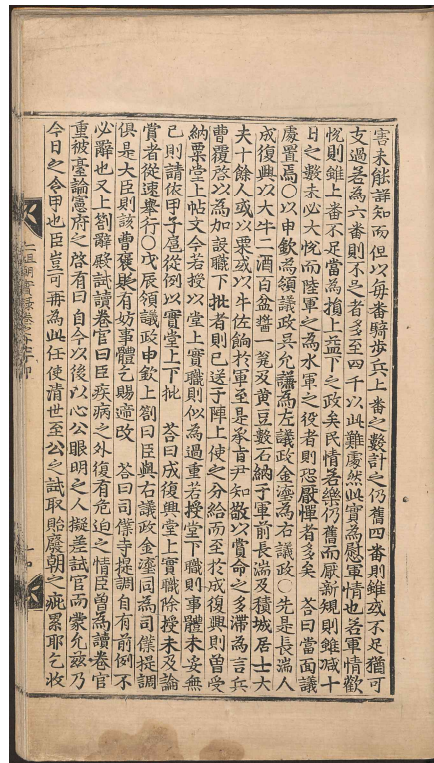 害未能詳知而但以每番騎步兵上番之數計之仍舊四番則雖或不足猶可
支過若爲六番則不足者多至四千以此難處然此實爲慰軍情也若軍情歡
悅則雖上番不足當爲損上益下之政矣民情若樂仍舊而厭新規則雖减十
日之數未必大悅而陸軍之爲水軍之役者則恐厭憚者多矣 答曰當面議
處置焉○以申欽爲領議政吳允謙爲左議政金瀯爲右議政○先是長湍人
成復興以大牛二酒百盆醬一瓮及黃豆數石納于軍前長湍及積城居士大
夫十餘人或以粟或以牛佐餉於軍至是承旨尹知敬以賞命之多滯爲言兵
曹覆啓以爲加設職下批者則已送于陣上使之分給而至於成復興則曾受
納粟堂上帖文今若授以堂上實職則似爲過重若授堂下職則事體未妥無
已則請依甲子扈從例以實堂上下批 答曰成復興堂上實職除授未及論
賞者從速擧行○戊辰領議政申欽上劄曰臣與右議政金瀯同爲司僕提調
俱是大臣則該曹褒貶有妨事體乞賜遞改 答曰司僕寺提調自有前例不
必辭也又上劄辭殿試讀卷官曰臣疾病之外復有危迫之情臣曾爲讀卷官
重被臺論憲府之啓有曰自今以後以心公眼明之人擬差試官而蒙允玆乃
今日之令甲也臣豈可冉爲此任使淸世至公之試取貽廢朝之疵累耶乞收
仁祖朝實錄卷之